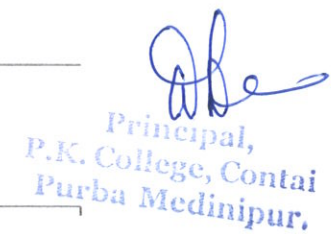 Principal,
P.K. College, Contai
Purba Medinipur.